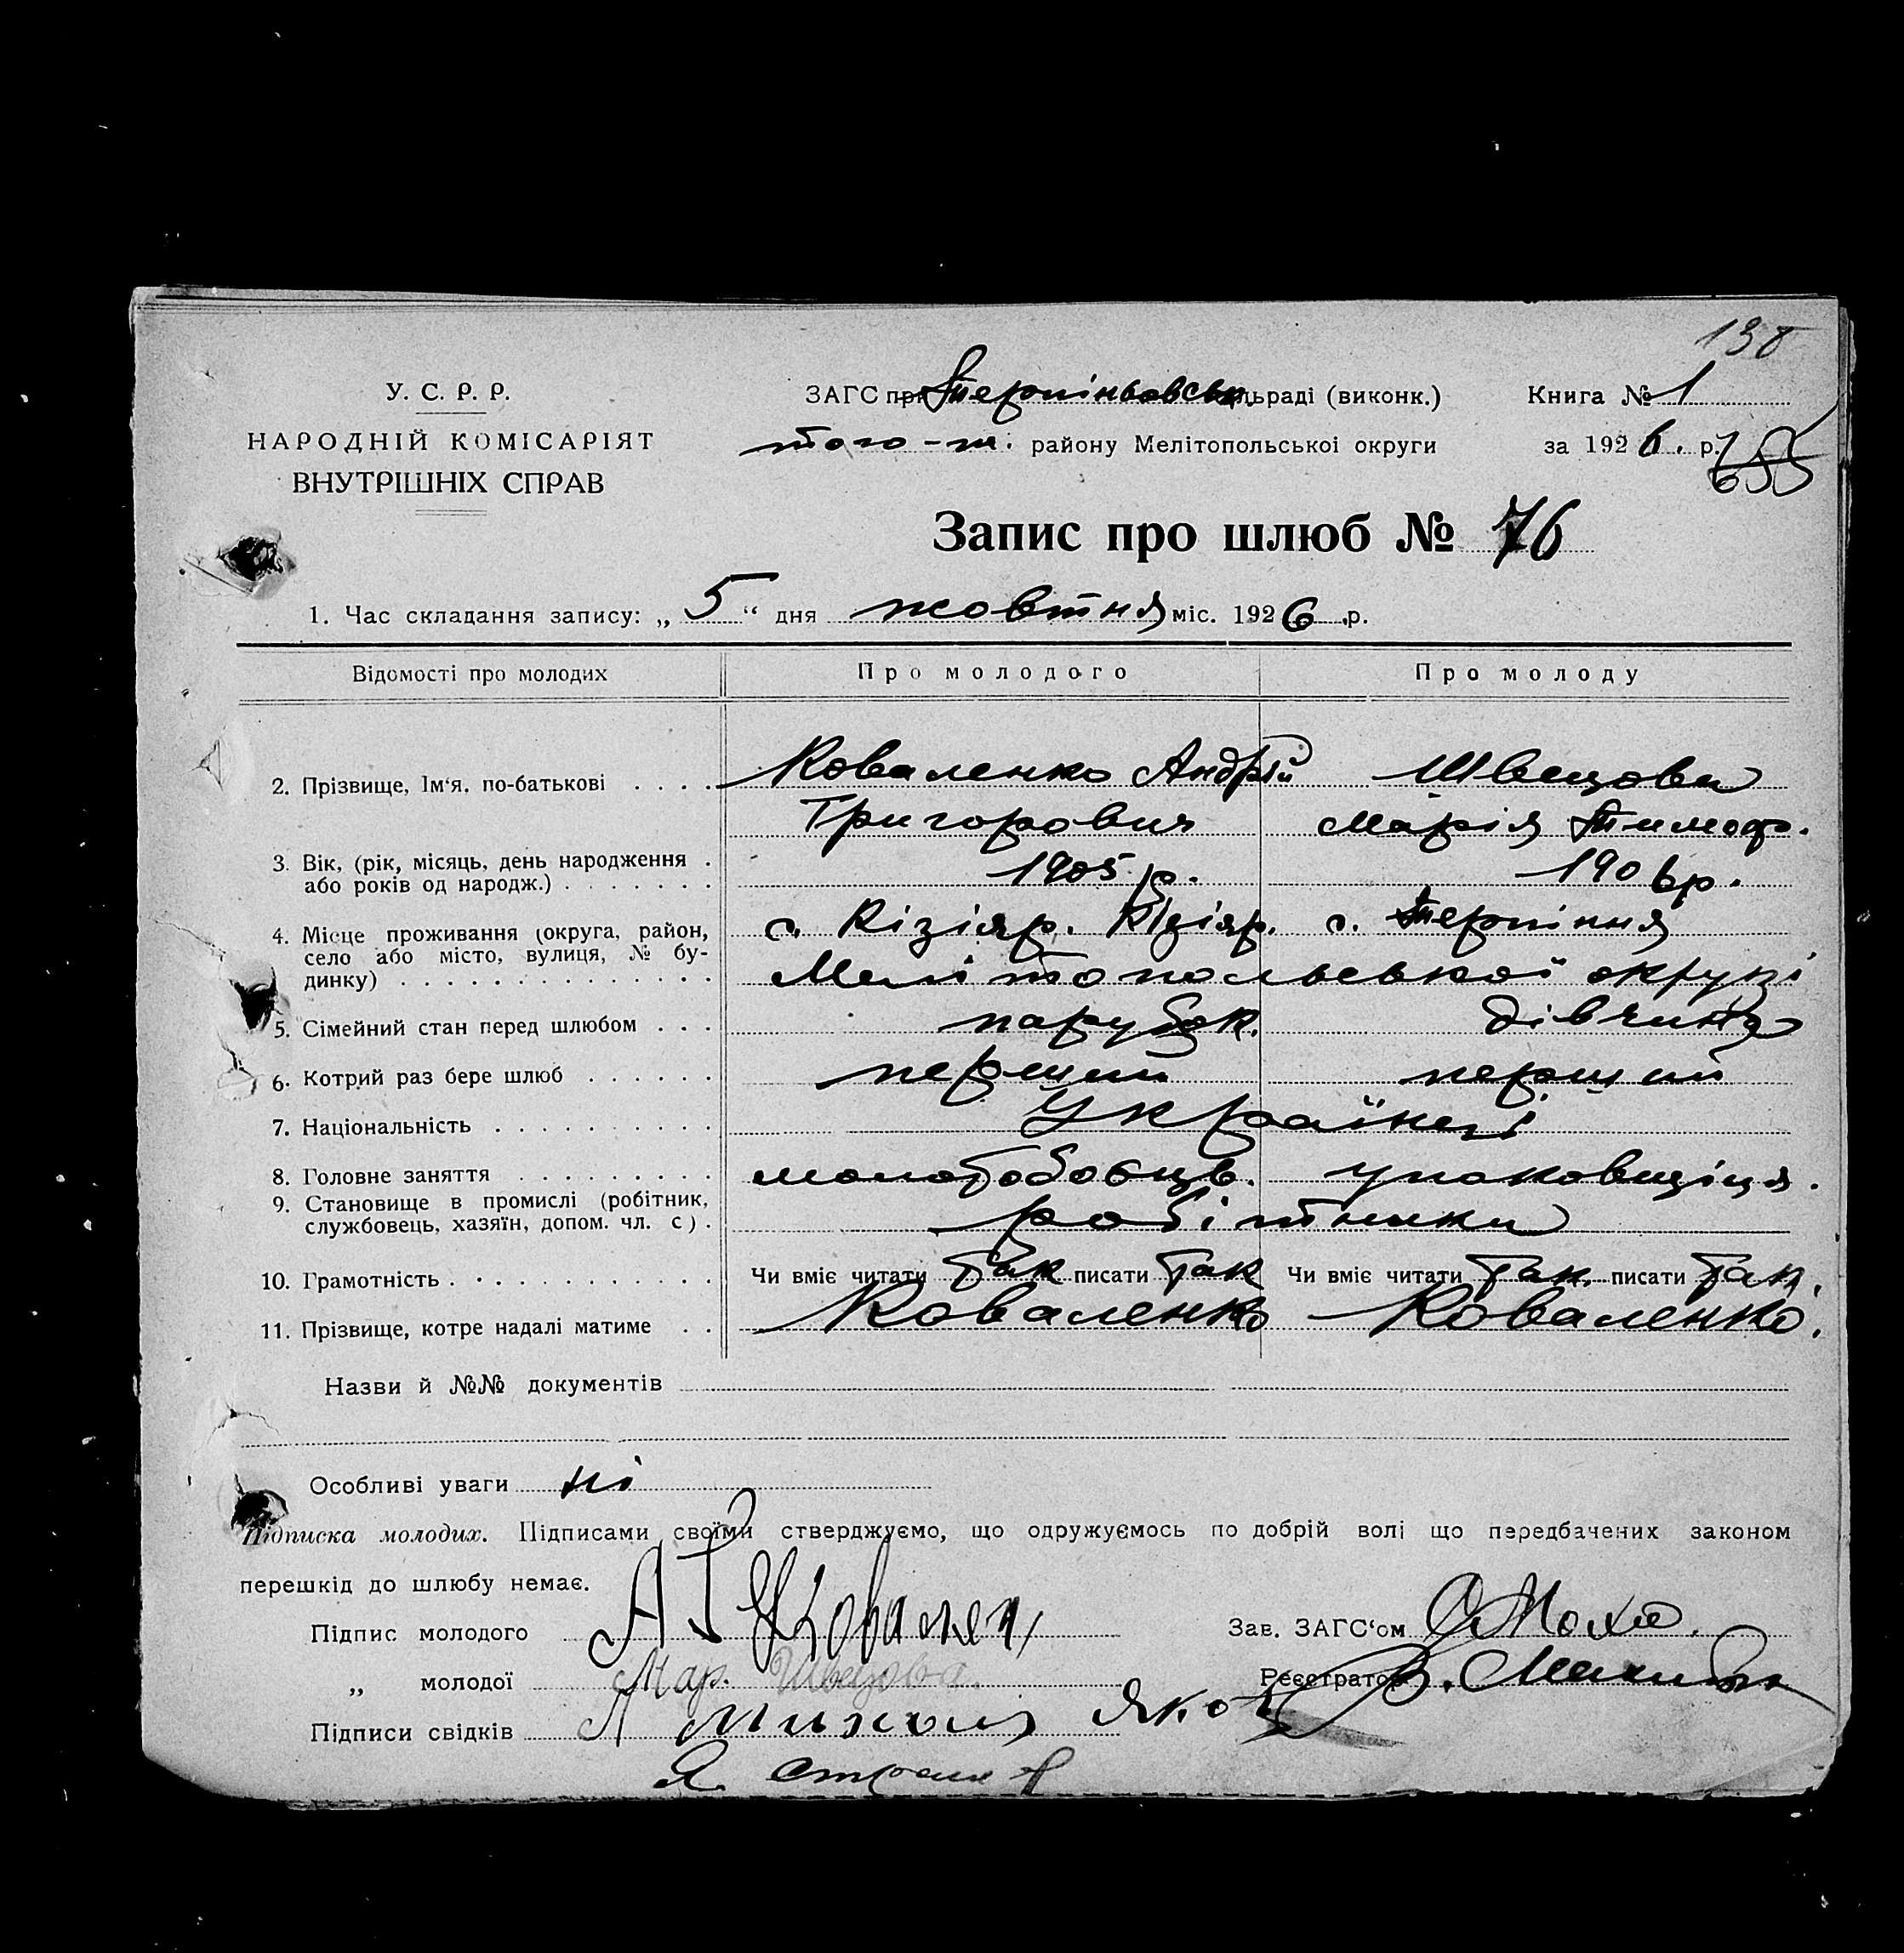 138
У. С. Р. Р.
НАРОДНІЙ КОМІСАРІЯТ
ВНУТРІШНІХ СПРАВ
ЗАГС при Терпіньовськ. льраді (виконк.)
того-ж. району Мелітопольської округи
Книга № 1
за 1926. р.
Запис про шлюб № 76
1. Час складання запису: „ 5 “ дня жовтня міс. 1926 р.
Відомості про молодих Про молодого Про молоду
2. Прізвище, Ім‘я. по-батькові . . . . Коваленко Андрій Швецова
Григорович Марія Тимоф.
3. Вік, (рік, місяць, день народження . 1905 р. 1906 р.
або років од народж.) . . . . . . .
4. Місце проживання (округа, район, с. Кізіяр. Кізіяр. с. Терпіння
село або місто, вулиця, № бу-
динку) . . . . . . . . . . . . . . Мелітопольської округі
5. Сімейний стан перед шлюбом . . . парубок. дівчина
6. Котрий раз бере шлюб . . . . . . перший перший
7. Національність . . . . . . . . . . Українці
8. Головне заняття . . . . . . . . . молотобоєць. упаковщіця.
9. Становище в промислі (робітник,
службовець, хазяїн, допом. чл. с) . робітники
10. Грамотність . . . . . . . . . . . . Чи вміє читати так писати так Чи вміє читати так. писати так.
11. Прізвище, котре надалі матиме . . Коваленко Коваленко.
Назви й №№ документів
Особливі уваги ні
Підписка молодих. Підписами своїми стверджуємо, що одружуємось по добрій волі що передбачених законом
перешкід до шлюбу немає.
Підпис молодого А Г Коваленк
Зав. ЗАГС‘ом
„ молодої Мар. Швецова.
Реєстратор В.
Підписи свідків